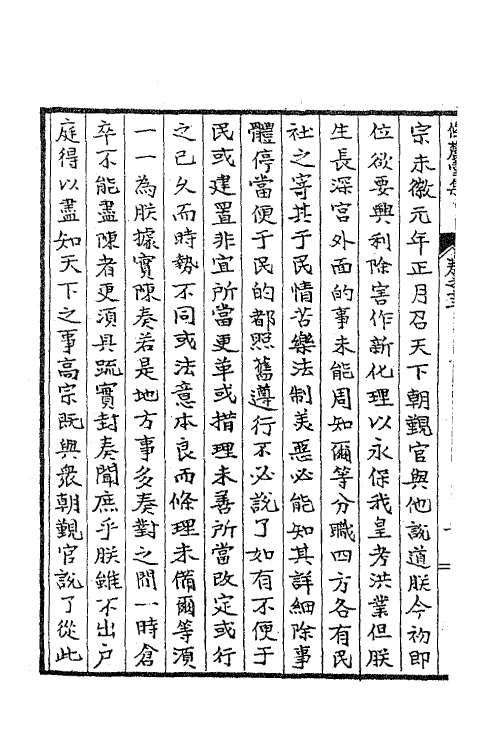 宗未徽元年正月召天下朝覲官與他說道朕今初即
位欲要興利除害作新化理以永保我皇考洪業但朕
生長深宮外面的事未能周知爾等分職四方各有民
社之寄其于民情苦樂法制美惡必能知其詳細除事
體停當便于民的都照舊遵行不必說了如有不便于
民或建置非宜所當更革或措理未善所當改定或行
之已久而時勢不同或法意本良而條理未備爾等須
一一為朕據實陳奏若是地方事多奏對之間一時倉
卒不能盡陳者更須具疏實封奏聞庶乎朕雖不出户
庭得以盡知天下之事高宗既與衆朝覲官說了從此